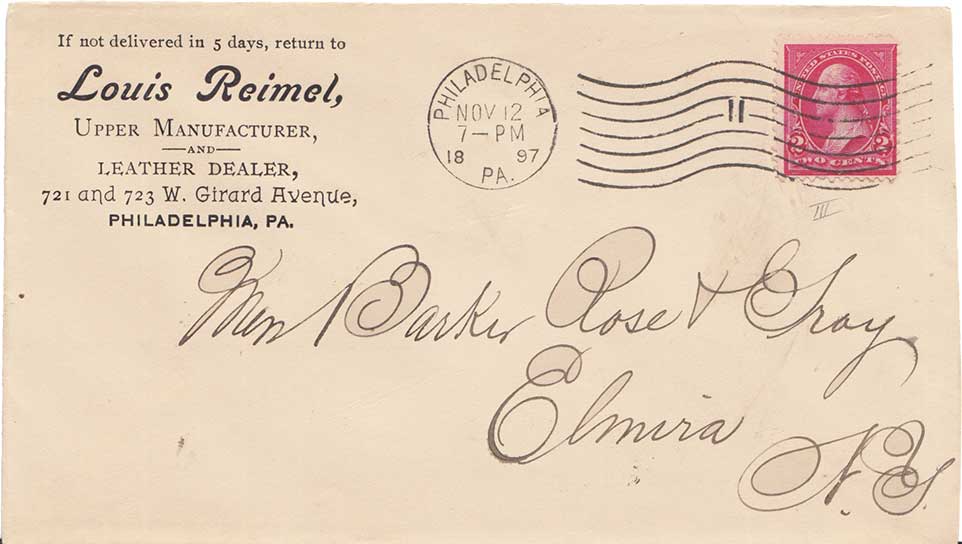 If not delivered in 5 days, return to
Louis Reimel,
UPPER MANUFACTURER,
—AND—
LEATHER DEALER,
721 and 723 W. Girard Avenue,
PHILADELPHIA, PA.
PHILADELPHIA
NOV 12
7–PM
18 97
PA.
11
UNITED STATES POSTAGE
2 2
TWO CENTS
III
Barker Rose & Gray
Elmira
N.Y.